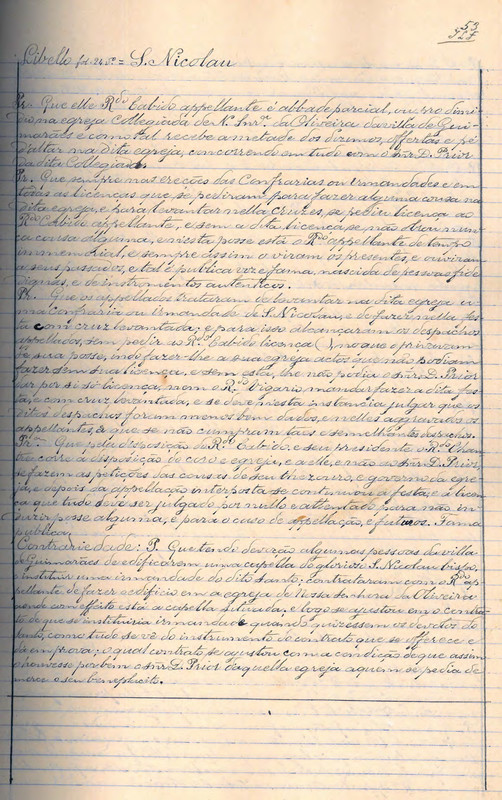 53
Libello fol. 24 vº = S. Nicolau
Pr. Que elle Rdo Cabido appellante é abbade parcial, ou pro dimi-
dio na egreja Collegiada de N. Snrª da Oliveira da villa de Gui-
marães e como tal recebe ametade dos dizimos, offertas e pé
d'altar na dita egreja, concorrendo em tudo com o snr D. Prior
da dita Collegiada.
Pr. Que sempre nas ereções das Confrarias ou irmandades e em
todas as licenças que se pediram para fazer alguma cousa na
dita egreja, e para levantar nella cruzes, se pediu licença ao
Rdo Cabido appellante, e sem a dita licença se não obrou nun-
ca cousa alguma, e n'esta posse está o Rdo appellante de tempo
immemorial, e sempre assim o viram os presentes, e ouviram
a seus passados, e tal é publica voz e fama, nascida de pessoas fide-
dignas, e de instrumentos autenticos.
Pr. Que os appellados trataram de levantar na dita egreja u-
ma Confraria ou irmandade de S. Nicolau, e de fazer nella fes-
ta com cruz levantada; e para isso alcançaram os despachos
appellados, sem pedir ao Rdo Cabido licença ( ), no que o privavam
de sua posse, indo fazer-lhe a sua egreja actos que não podiam
fazer sem sua licença, e sem esta, lhe não podia o snr D. Prior
dar por si só licença, nem o Rdo Vigario mandar fazer a dita fes-
ta, e com cruz levantada, e se deve n'esta instancia julgar que os
ditos despachos foram menos bem dados, e n'elles aggravados os
appellantes, e que se não cumpram taes e semilhantes despachos.
Pr. Que pela disposição do Rdo Cabido, e seu presidente o Rdo Chan-
tre corre a disposição do coro e egreja, e a elle, e não ao snr D. Prior,
se fazem as petições das cousas de seu thezouro, e governo da egre-
ja, e depois da appellação interposta se continuou a festa, e a licen-
ça que tudo deve ser julgado por nullo e attentado para não in-
duzir posse alguma, e para o caso de appellação, e futuros. Fama
publica.
Contrariedade: P. Que tendo devoção algumas pessoas da villa
de Guimarães de edificarem uma capella do glorioso S. Nicolau bispo,
e instituir uma irmandade do dito Santo; contrataram com o Rdo ap-
pellante de fazer o edificio em a egreja de Nossa Senhora da Oliveira
aonde com effeito está a capella situada, e logo se ajustou em o contra-
to de que se instituiria irmandade quando quizessem os devotos do
Santo, como tudo se vê do instrumento de contracto que se offerece e
dá em prova; o qual contrato se ajustou com a condição de que assim
o houvesse por bem o snr D. Prior daquella egreja a quem se pedia de-
mover o seu beneplacito.